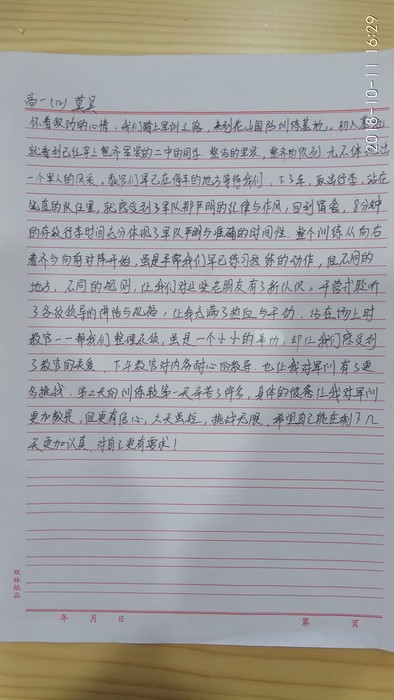 2018-10-11 16:29
高一(12) 莫昊
怀着激动的心情,我们踏上军训之路,来到花山国防训练基地。初入基地
就看到已经穿上整齐军装的二中的同学,整洁的里装,整齐的队列,无不体现出
一个军人的风采,教官们早已在停车的地方等待我们,下了车,取出行李,站在
笔直的队伍里,就感受到了军队那严明的纪律与作风,回到宿舍,8分钟
的存放行李时间充分体现了军队严明与准确的时间性,整个训练从向右
看齐与向前对齐开始,虽是平常我们早已练习熟练的动作,但不同的
地方,不同的规则,让我们对这些老朋友有了新认识,开营式聆听
了各级领导的讲话与祝福,让我充满了热血与干劲,站在烈日上时
教官一一帮我们整理衣领,虽是一个小小的举动,却让我们感受到
了教官的关爱,下午教官对内务耐心的教导,也让我对军训有了更
多挑战,第二天的训练较第一天辛苦了许多,身体的疲惫让我对军训
更加敬畏,但更有信心,六天虽短,挑战无限,希望自己能在剩下几
天更加认真,对自己更有要求!
双林纸品
年 月 日 第 页